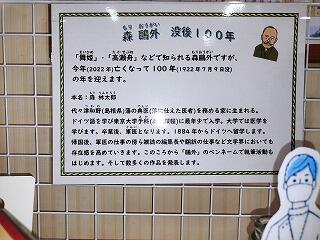 森 鷗外 没後100年
もり おうがい
「舞姫」・「高瀬舟」などで知られる森鷗外ですが、
今年(2022年)亡くなって100年(1922年7月9日没)
の年を迎えます。
本名：森 林太郎
代々津和野(島根県)藩の典医(藩に仕えた医者)を務める家に生まれる。
ドイツ語を学び東京大学予科(医学部)に最年少で入学。大学では医学を
学びます。卒業後、軍医となります。1884年からドイツへ留学します。
帰国後、軍医の仕事の傍ら雑誌の編集長や翻訳の仕事など文学界においても
存在感を高めていきます。このころから「鷗外」のペンネームで執筆活動も
はじめます。そして数多くの作品を発表します。